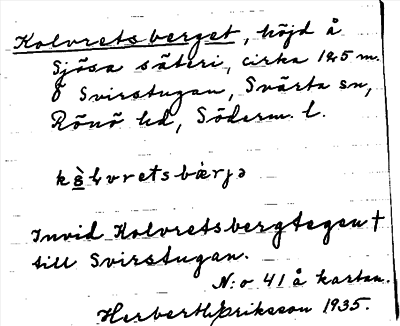 Kolvretsberget, höjd å
Sjösa säteri, cirka 125 m.
Ö Svirstugan, Svärta sn,
Rönö hd, Söderm. l.
Invid Kolvretsbergtegen †
till Svirstugan.
N:o 41 å kartan.
Herbert Eriksson 1935.